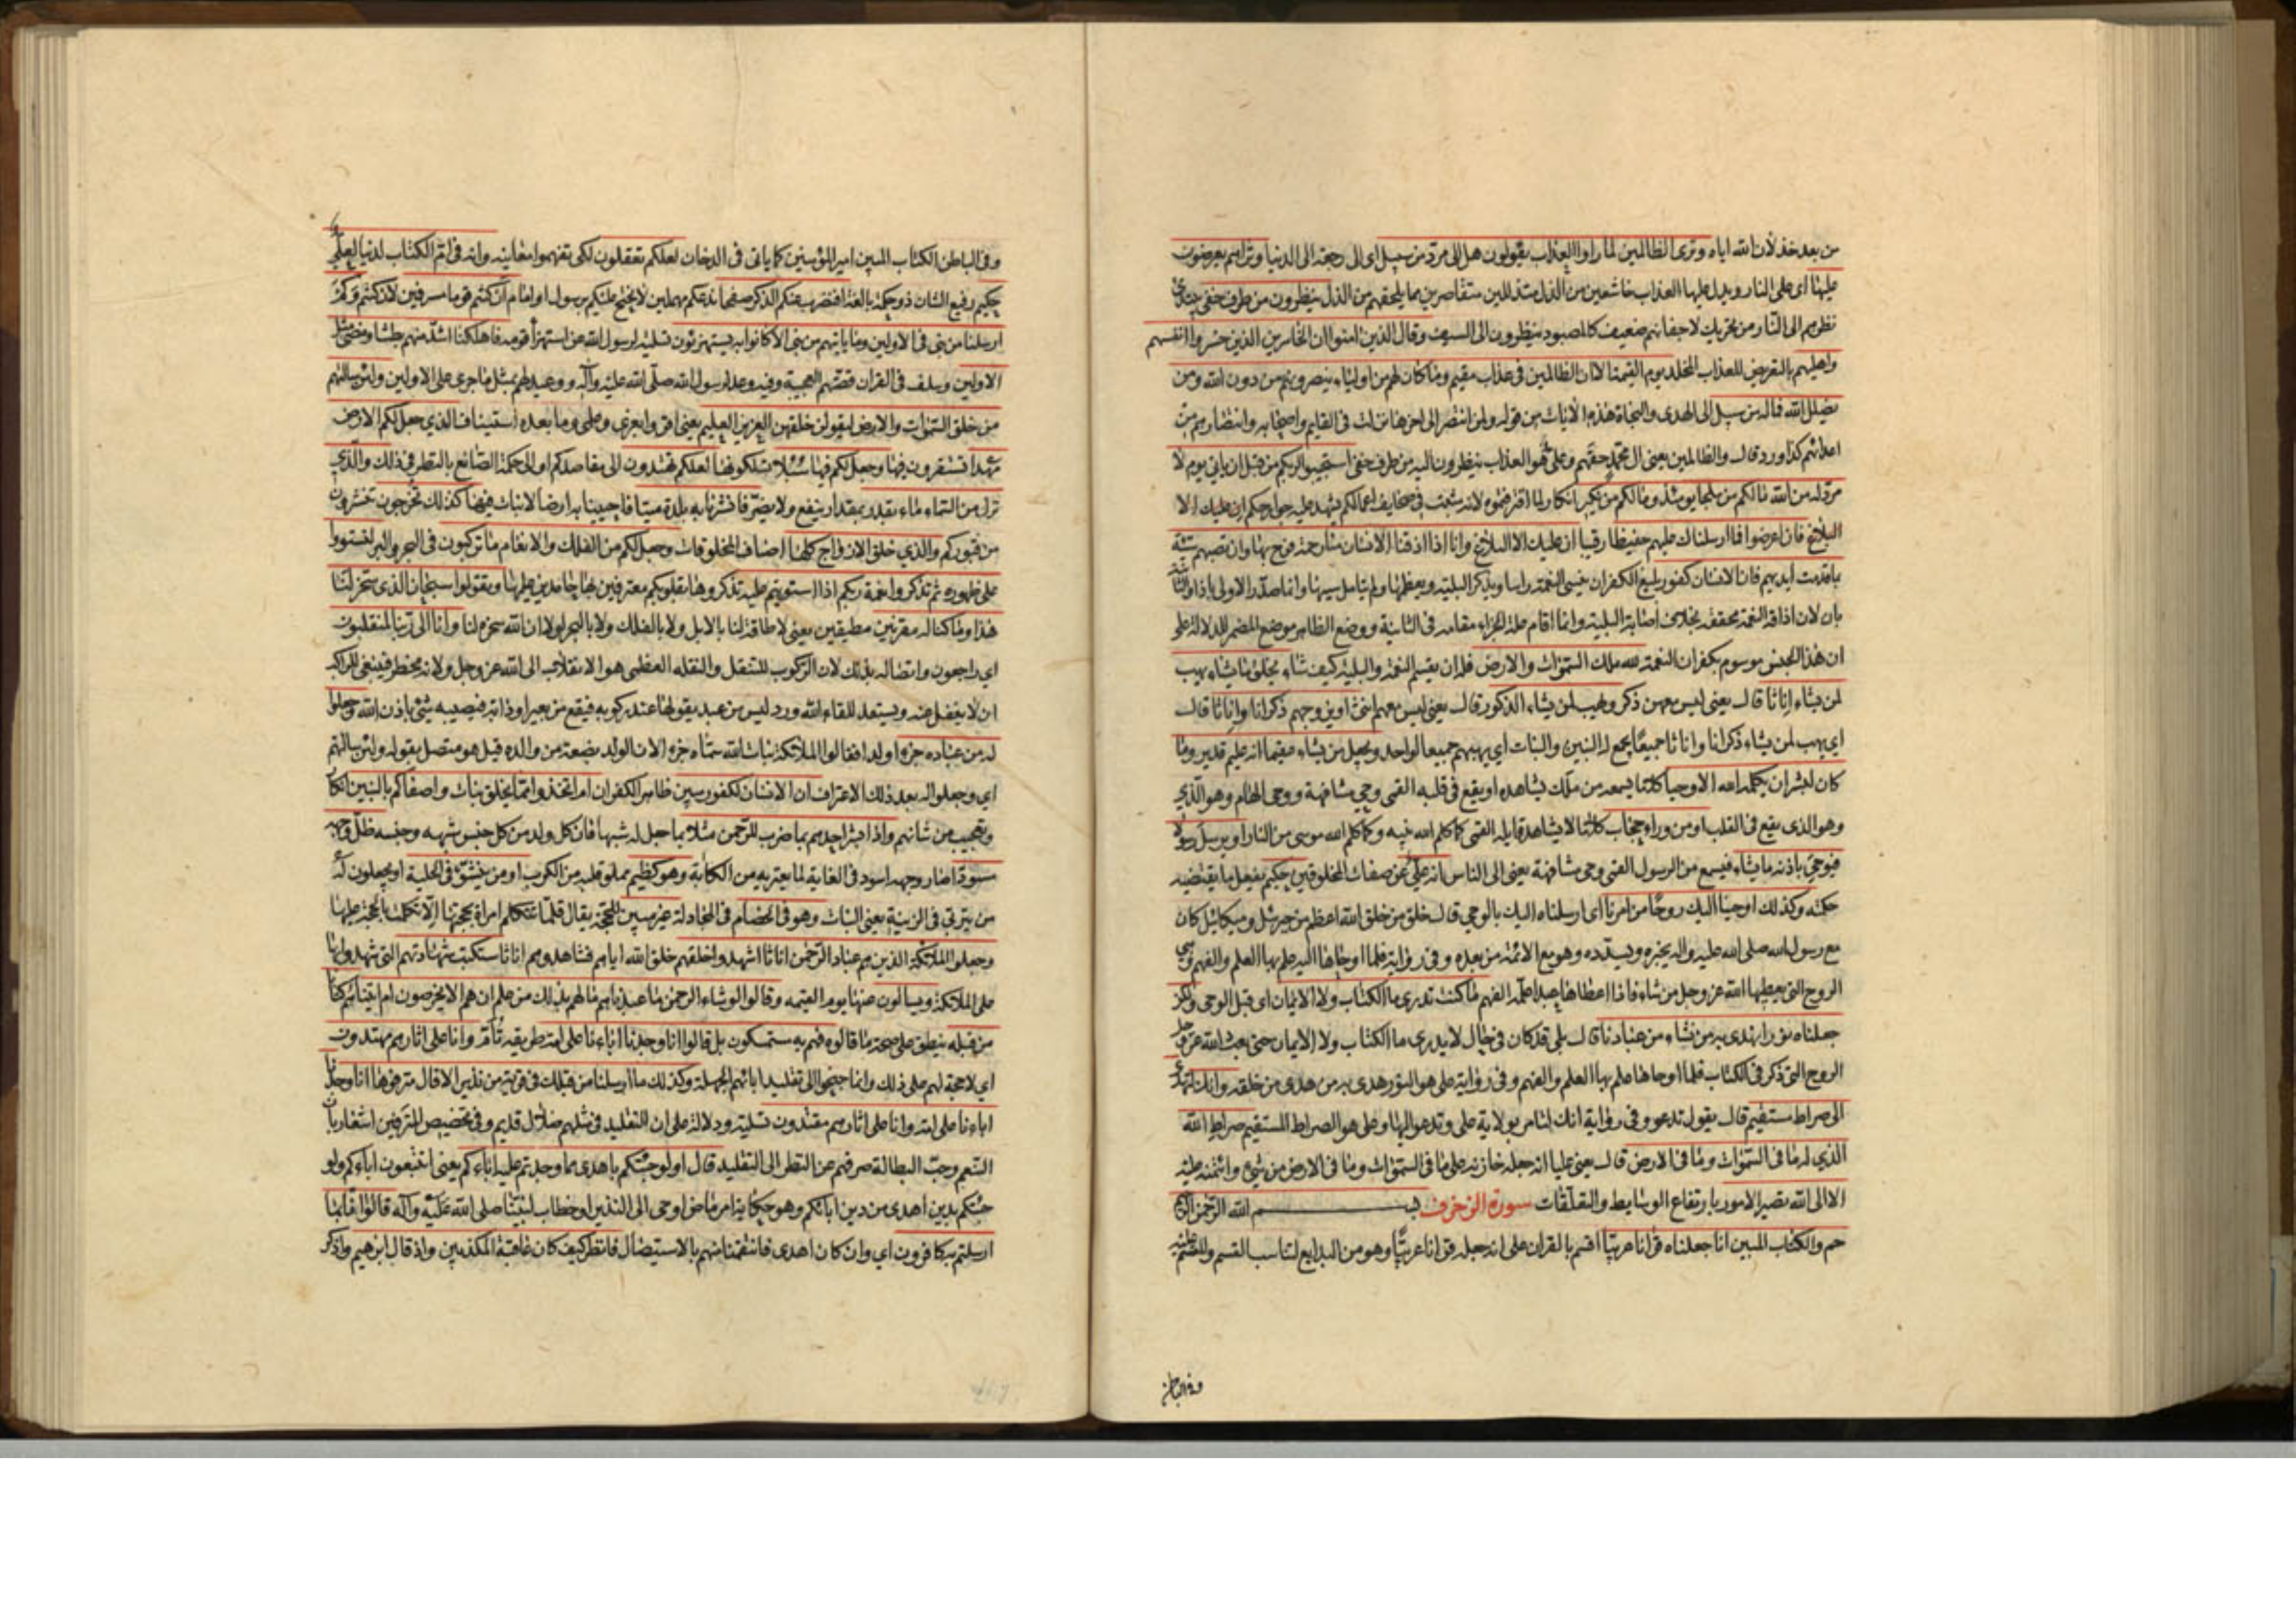 من بعد خذلان الله اياه وترى الظالمين لما راوا العذاب يقولون هل الى مرد من سبيل اى الى رجعة الى الدنيا وتراهم يعرضون
عليها اى على النار ويدل عليها العذاب خاشعين من الذل متذللين متقاصرين مما يلحقهم من الذل ينظرون من طرف خفى يبتدى
نظرهم الى النار من تحريك لاجفانهم ضعيف كالمصبور ينظرون الى السيف وقال الذين امنوا ان الخاسرين الذين خسروا انفسهم
واهليهم بالتعريض للعذاب المخلد يوم القيمة الا ان الظالمين فى عذاب مقيم وما كان لهم من اولياء ينصرونهم من دون الله ومن
يضلل الله فما له من سبيل الى الهدى والنجاة هذه الايات من قوله ولمن انتصر الى اخرها نزلت فى القايم واصحابه وانتصارهم من
اعدائهم كذا ورد وقال والظالمين يعنى ال محمد حقهم وعلى هو العذاب ينظرون اليه من طرف خفى استجيبوا لربكم من قبل ان ياتى يوم لا
مرد له من الله مالكم من ملجا يومئذ ومالكم من نكير انكار لما اقترفتموه لانه مثبت فى صحايف اعمالكم يشهد عليه جوارحكم ان عليك الا
البلاغ فان اعرضوا فما ارسلناك عليهم حفيظا رقيبا ان عليك الا البلاغ وانا اذا اذقنا الانسان منا رحمة فرح بها وان تصبهم سيئة
بما قدمت ايديهم فان الانسان كفور بليغ الكفران ينسى النعمة راسا ويذكر البلية ويعظمها ولم يتامل سببها وانما صدر الاولى باذا والثانية
بان لان اذاقة النعمة محققة بخلاف اصابة البلية وانما اقام علة الجزاء مقامه فى الثانية ووضع الظاهر موضع المضمر للدلالة على
ان هذا الجنس موسوم بكفران النعمة لله ملك السموات والارض فله ان يقسم النعمة والبلية كيف شاء يخلق ما يشاء يهب
لمن يشاء اناثا قال يعنى ليس معهن ذكر ويهب لمن يشاء الذكور قال يعنى ليس معهم انثى او يزوجهم ذكرانا واناثا قال
اى يهب لمن يشاء ذكرانا واناثا جميعا يجمع له البنين والبنات اى يهبهم جميعا لواحد ويجعل من يشاء عقيما انه عليم قدير وما
كان لبشر ان يكلمه الله الا وحيا كلاما يسمعه من ملك يشاهده او يقع فى قلبه القمى وحى مشافهة ووحى الهام وهو الذى
وهو الذى يقع فى القلب او من وراء حجاب كلاما لا يشاهد قايله القمى كما كلم الله نبيه وكما كلم الله موسى من النار او يرسل رسولا
فيوحى باذنه ما يشاء فيسمع من الرسول القمى وحى مشافهة يعنى الى الناس انه على عن صفات المخلوقين حكيم يفعل ما يقتضيه
حكمته وكذلك اوحينا اليك روحا من امرنا اى ارسلناه اليك بالوحى قال خلق من خلق الله اعظم من جبرئيل وميكائيل كان
مع رسول الله صلى الله عليه واله يخبره ويسدده وهو مع الائمة من بعده وفى رواية فلما اوحاها اليه علم بها العلم والفهم وهى
الروح التى يعطيها الله عز وجل من شاء فاذا اعطاها عبدا علمه الفهم ما كنت تدرى ما الكتاب ولا الايمان اى قبل الوحى ولكن
جعلناه نورا نهدى به من نشاء من عبادنا قال بلى قد كان فى حال لا يدرى ما الكتاب ولا الايمان حتى بعث الله عز وجل
الروح التى ذكر فى الكتاب فلما اوحاها علم بها العلم والفهم وفى رواية على هو النور هدى به من هدى من خلقه وانك لتهدى
الى صراط مستقيم قال يقول تدعو وفى رواية انك لتامر بولاية على وتدعو اليها وعلى هو الصراط المستقيم صراط الله
الذى له ما فى السموات وما فى الارض قال يعنى عليا انه جعله خازنه على ما فى السموات وما فى الارض من شىء وائتمنه عليه
الا الى الله تصير الامور بارتفاع الوسايط والتعلقات سورة الزخرف بسم الله الرحمن الرحيم
حم والكتاب المبين انا جعلناه قرانا عربيا اقسم بالقران على انه جعله قرانا عربيا وهو من البدايع لتناسب القسم والمقسم عليه
وفى الباطن
وفى الباطن الكتاب المبين امير المؤمنين كما ياتى فى الدخان لعلكم تعقلون لكى تفهموا معانيه وانه فى ام الكتاب لدينا لعلى
حكيم رفيع الشان ذو حكمة بالغة افنضرب عنكم الذكر صفحا ندعكم مهملين لا يحتج عليكم برسول او امام ان كنتم قوما مسرفين لان كنتم وكم
ارسلنا من نبى فى الاولين وما ياتيهم من نبى الا كانوا به يستهزئون تسلية لرسول الله عن استهزاء قومه فاهلكنا اشد منهم بطشا ومضى مثل
الاولين وسلف فى القران قصتهم العجيبة وفيه وعد لرسول الله صلى الله عليه وآله ووعيد لهم بمثل ما جرى على الاولين ولئن سالتهم
من خلق السموات والارض ليقولن خلقهن العزيز العليم يعنى اقروا بعزى وعلمى وما بعده استيناف الذى جعل لكم الارض
مهدا فتستقرون فيها وجعل لكم فيها سبلا تسلكونها لعلكم تهتدون الى مقاصدكم او الى حكمة الصانع بالنظر فى ذلك والذى
نزل من السماء ماء بقدر بمقدار ينفع ولا يضر فانشرنا به بلدة ميتا فاحيينا به ارضا لا نبات فيها كذلك تخرجون تنشرون
من قبوركم والذى خلق الازواج كلها اصناف المخلوقات وجعل لكم من الفلك والانعام ما تركبون فى البحر والبر لتستووا
على ظهوره ثم تذكروا نعمة ربكم اذا استويتم عليه تذكروها بقلوبكم معترفين بها حامدين عليها وتقولوا سبحان الذى سخر لنا
هذا وما كنا له مقرنين مطيقين يعنى لا طاقة لنا بالابل ولا بالفلك ولا بالبحر لولا ان الله سخره لنا وانا الى ربنا لمنقلبون
اى راجعون واتصاله بذلك لان الركوب للتنقل والنقلة العظمى هو الانقلاب الى الله عز وجل ولانه مخطر فينبغى للراكب
ان لا يغفل عنه ويستعد للقاء الله ورد ليس من عبد يقولها عند ركوبه فيقع من بعير او دابة فيصيبه شىء باذن الله وجعلوا
له من عباده جزءا ولدا فقالوا الملائكة بنات الله سماه جزءا لان الولد بضعة من والده قيل هو متصل بقوله ولئن سالتهم
اى وجعلوا له بعد ذلك الاعتراف ان الانسان لكفور مبين ظاهر الكفران ام اتخذ مما يخلق بنات واصفاكم بالبنين انكار
وتعجيب من شانهم واذا بشر احدهم بما ضرب للرحمن مثلا بما جعل له شبها فان كل ولد من كل جنس شبهه وجنسه ظل وجهه
مسودا صار وجهه اسود فى الغاية لما يعتريه من الكابة وهو كظيم مملو قلبه من الكرب اومن ينشؤ فى الحلية او يجعلون له
من يتربى فى الزينة يعنى البنات وهو فى الخصام فى المجادلة غير مبين للحجة يقال قلما تتكلم امراة بحجتها الا تكلمت بالحجة عليها
وجعلوا الملائكة الذين هم عباد الرحمن اناثا اشهدوا خلقهم خلق الله اياهم فشاهدوهم اناثا ستكتب شهادتهم التى شهدوا بها
على الملائكة ويسالون عنها يوم القيمة وقالوا لو شاء الرحمن ما عبدناهم ما لهم بذلك من علم ان هم الا يخرصون ام اتيناهم كتابا
من قبله ينطق على صحة ما قالوه فهم به مستمسكون بل قالوا انا وجدنا اباءنا على امة طريقة تأم وانا على اثارهم مهتدون
اى لا حجة لهم على ذلك وانما جنحوا الى تقليد ابائهم الجهلة وكذلك ما ارسلنا من قبلك فى قرية من نذير الا قال مترفوها انا وجدنا
اباءنا على امة وانا على اثارهم مقتدون تسلية ودلالة على ان التقليد فى مثلهم ضلال قديم وفى تخصيص المترفين اشعار بان
التنعم وحب البطالة صرفهم عن النظر الى التقليد قال اولو جئتكم باهدى مما وجدتم عليه اباءكم يعنى اتتبعون اباءكم ولو
جئتكم بدين اهدى من دين ابائكم وهو حكاية امر ماض اوحى الى النذير او خطاب لنبينا صلى الله عليه وآله قالوا انا بما
ارسلتم به كافرون اى وان كان اهدى فانتقمنا منهم بالاستيصال فانظر كيف كان عاقبة المكذبين واذ قال ابرهيم واذكر